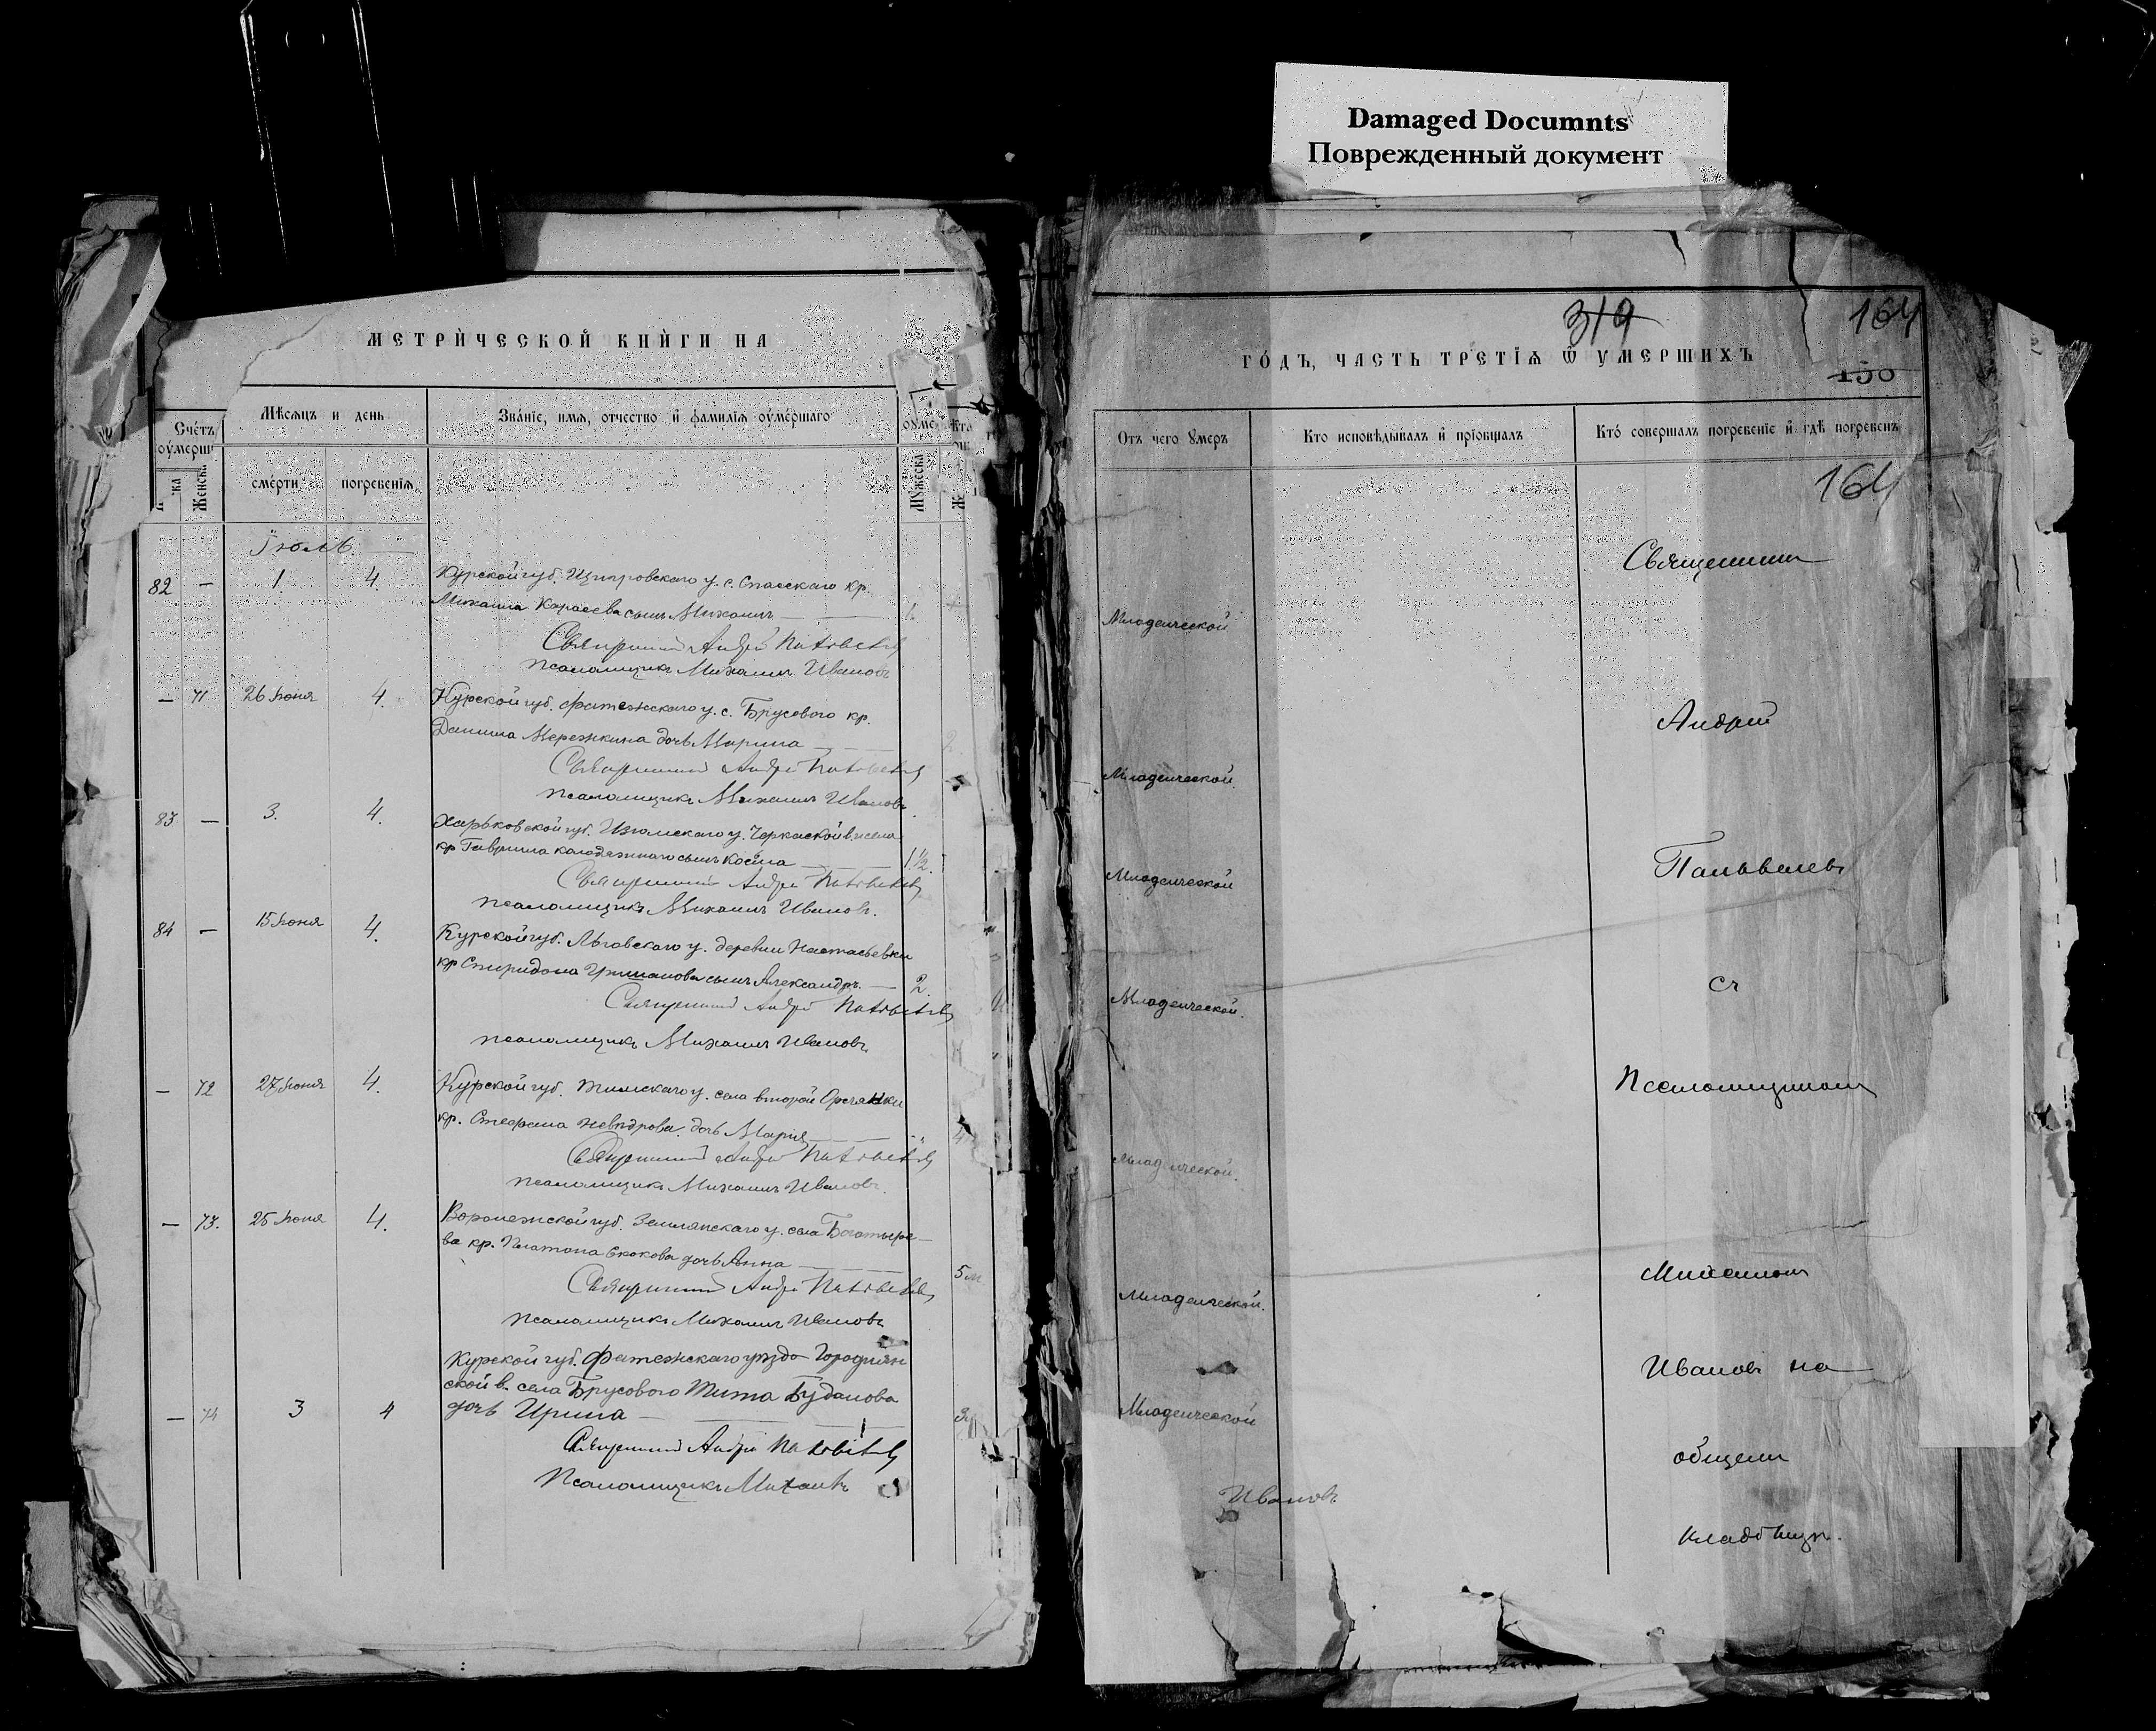 Damaged Documnts
Поврежденный документ
МЕТРИ́ЧЕСКОЙ КНИ́ГИ НА
Сче́тъ
оу́мерш
Женска
Мѣсяцъ и день
сме́рти
погребенїѧ
Зва́нїе, имѧ, отчество и фамилїѧ оу́ме́ршаго
Мужеска
Іюль.
82 — 1. 4. Курской губ. Щигровскаго у. с. Спасскаго кр.
Михаила Карасева сынъ Михаилъ
Священникъ Андрей
псаломщикъ Михаилъ Ивановъ
— 71 26 Іюня 4. Курской губ. Фатежскаго у. с. Брусового кр.
Данила Мережкина дочь Марина
Священникъ Андрей
псаломщикъ Михаилъ Ивановъ
83 — 3. 4. Харьковской губ. Изюмскаго у. Черкаской в. и села
кр Гаврила Калодяжнаго сынъ Косма — 1½.
Священникъ Андрей
псаломщикъ Михаилъ Ивановъ.
84 — 15 Іюня 4. Курской губ. Льговскаго у. деревни Настасьевки
кр Спиридона Гришанова сынъ Александръ — 2
Священникъ Андрей
псаломщикъ Михаилъ Ивановъ
— 72 27 Іюня 4. Курской губ. Тимскаго у. села второй
кр. Стефана дочь Марія
Священникъ Андрей
псаломщикъ Михаилъ Ивановъ.
— 73. 25 Іюня 4. Воронежской губ. Землянскаго у. села Богатыре-
ва кр. Платона Скокова дочь Анна — 5 м
Священникъ Андрей
псаломщикъ Михаилъ Ивановъ
Курской губ. Фатежскаго уѣзда Городнян
ской в. села Брусового Тита Буданова
— 74 3 4 дочь Ирина
Священникъ Андрей
Псаломщикъ Михаилъ
319
164
ГО́ДЪ, ЧАСТЬ ТРЕТЇѦ Ѿ УМЕРШИХЪ
150
Отъ чего умеръ
Кто исповѣдывалъ и прїобщалъ
Кто́ совершалъ погребенїе и гдѣ погребенъ
164
Священникъ
Младенческой
Андрей
Младенческой.
Младенческой
съ
Младенческой.
Псаломщикомъ
Младенческой.
Михаиломъ
Младенческой.
Ивановъ на
Младенческой
общемъ
Ивановъ
кладбищѣ.